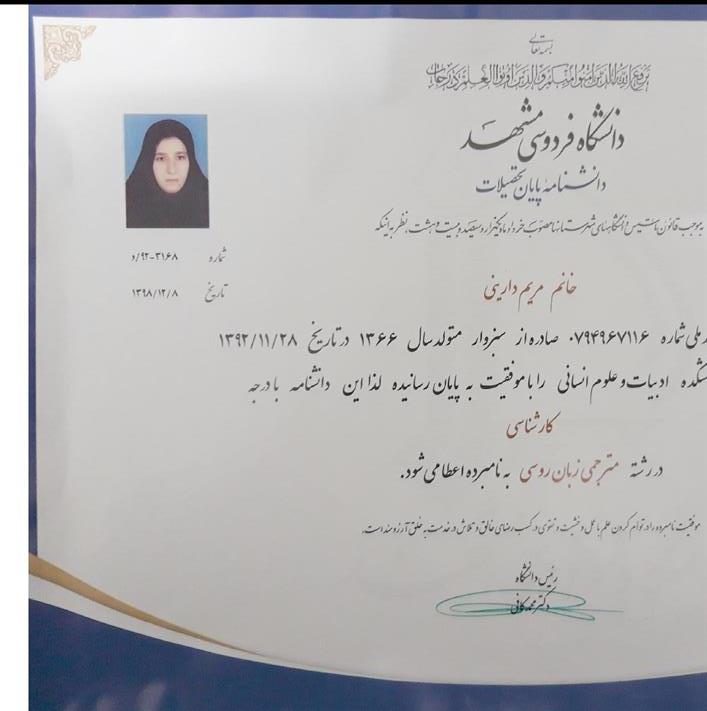 بسمه تعالی
یرفع الله الذین آمنوا منکم والذین اوتوا العلم درجات
دانشگاه فردوسی مشهد
دانشنامهٔ پایان تحصیلات
به موجب قانون تاسیس دانشگاههای شهرستانها مصوب خردادماه یکهزار و سیصد و بیست و هشت، نظر به اینکه
شماره ۹۲-۳۱۶۸/د
تاریخ ۱۳۹۸/۱۲/۸
خانم مریم دارینی
ملی شماره ۰۷۹۴۹۶۷۱۱۶ صادره از سبزوار متولد سال ۱۳۶۶ در تاریخ ۱۳۹۲/۱۱/۲۸
ادبیات و علوم انسانی را با موفقیت به پایان رسانیده لذا این دانشنامه با درجه
کارشناسی
در رشته مترجمی زبان روسی به نامبرده اعطا می شود.
موفقیت نامبرده را در توأم کردن علم با عمل و خشیت و تقوی در کسب رضای خالق و تلاش در خدمت به خلق آرزومند است.
رئیس دانشگاه
دکتر محمد کافی